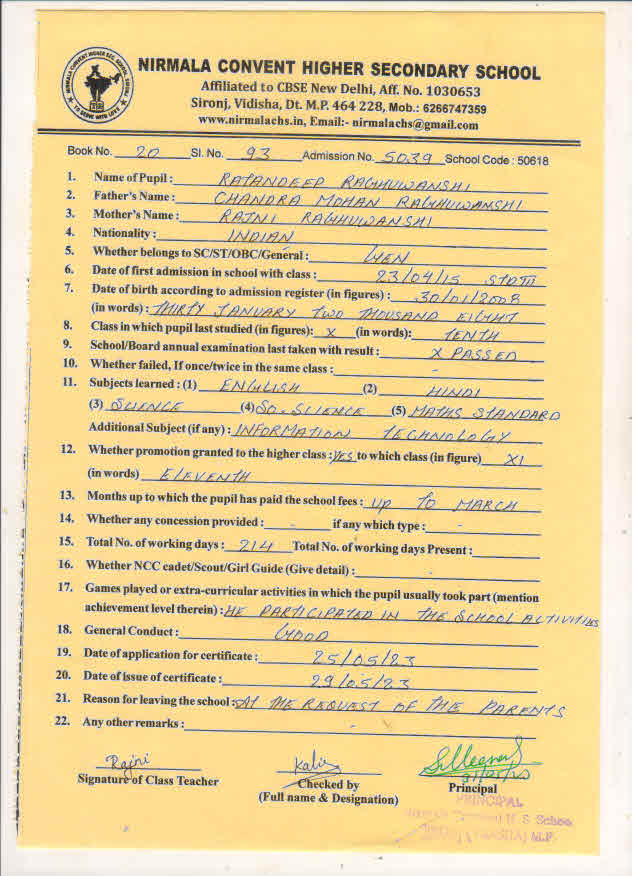 NIRMALA CONVENT HIGHER SECONDARY SCHOOL
Affiliated to CBSE New Delhi, Aff. No. 1030653
Sironj, Vidisha, Dt. M.P. 464 228, Mob.: 6266747359
www.nirmalachs.in, Email:- nirmalachs@gmail.com
NIRMALA CONVENT HIGHER SEC. SCHOOL, SIRONJ
TO SERVE WITH LOVE
Book No. 20 Sl. No. 93 Admission No. 5039 School Code : 50618
1. Name of Pupil : RAJANDEEP RAGHUWANSHI
2. Father's Name : CHANDRA MOHAN RAGHUWANSHI
3. Mother's Name : RAJNI RAGHUWANSHI
4. Nationality : INDIAN
5. Whether belongs to SC/ST/OBC/General : GEN
6. Date of first admission in school with class : 23/04/15 STD III
7. Date of birth according to admission register (in figures) : 30/01/2008
(in words) : THIRTY JANUARY TWO THOUSAND EIGHT
8. Class in which pupil last studied (in figures): X (in words): TENTH
9. School/Board annual examination last taken with result : X PASSED
10. Whether failed, If once/twice in the same class : -
11. Subjects learned : (1) ENGLISH (2) HINDI
(3) SCIENCE (4) SO. SCIENCE (5) MATHS STANDARD
Additional Subject (if any) : INFORMATION TECHNOLOGY
12. Whether promotion granted to the higher class : YES to which class (in figure) XI
(in words) ELEVENTH
13. Months up to which the pupil has paid the school fees : UP TO MARCH
14. Whether any concession provided : - if any which type : -
15. Total No. of working days : 214 Total No. of working days Present :
16. Whether NCC cadet/Scout/Girl Guide (Give detail) : -
17. Games played or extra-curricular activities in which the pupil usually took part (mention
achievement level therein) : HE PARTICIPATED IN THE SCHOOL ACTIVITIES
18. General Conduct : GOOD
19. Date of application for certificate : 25/05/23
20. Date of issue of certificate : 29/05/23
21. Reason for leaving the school : AT THE REQUEST OF THE PARENTS
22. Any other remarks : -
Rajni
Signature of Class Teacher
Checked by
(Full name & Designation)
Principal
PRINCIPAL
H. S. School
M.P.